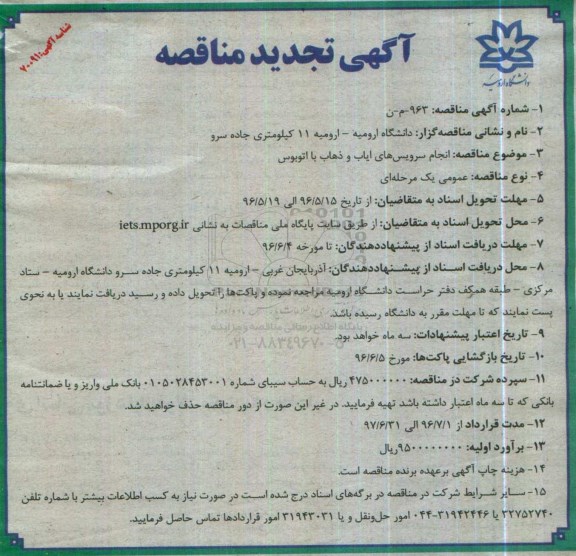 شناسه آگهی: ۷۰۰۹۱
دانشگاه ارومیه
آگهی تجدید مناقصه
۱- شماره آگهی مناقصه: ۹۶۳-م-ن
۲- نام و نشانی مناقصه‌گزار: دانشگاه ارومیه - ارومیه ۱۱ کیلومتری جاده سرو
۳- موضوع مناقصه: انجام سرویس‌های ایاب و ذهاب با اتوبوس
۴- نوع مناقصه: عمومی یک مرحله‌ای
۵- مهلت تحویل اسناد به متقاضیان: از تاریخ ۹۶/۵/۱۵ الی ۹۶/۵/۱۹
۶- محل تحویل اسناد به متقاضیان: از طریق سایت پایگاه ملی مناقصات به نشانی iets.mporg.ir
۷- مهلت دریافت اسناد از پیشنهاددهندگان: تا مورخه ۹۶/۶/۴
۸- محل دریافت اسناد از پیشنهاددهندگان: آذربایجان غربی - ارومیه ۱۱ کیلومتری جاده سرو دانشگاه ارومیه - ستاد
مرکزی - طبقه همکف دفتر حراست دانشگاه ارومیه مراجعه نموده و پاکت‌ها را تحویل داده و رسید دریافت نمایند یا به نحوی
پست نمایند که تا مهلت مقرر به دانشگاه رسیده باشد.
۹- تاریخ اعتبار پیشنهادات: سه ماه خواهد بود.
۱۰- تاریخ بازگشایی پاکت‌ها: مورخ ۹۶/۶/۵
۱۱- سپرده شرکت در مناقصه: ۴۷۵۰۰۰۰۰۰ ریال به حساب سیبای شماره ۰۱۰۵۰۲۸۴۵۳۰۰۱ بانک ملی واریز و یا ضمانتنامه
بانکی که تا سه ماه اعتبار داشته باشد تهیه فرمایید. در غیر این صورت از دور مناقصه حذف خواهید شد.
۱۲- مدت قرارداد از ۹۶/۷/۱ الی ۹۷/۶/۳۱
۱۳- برآورد اولیه: ۹۵۰۰۰۰۰۰۰۰ریال
۱۴- هزینه چاپ آگهی برعهده برنده مناقصه است.
۱۵- سایر شرایط شرکت در مناقصه در برگه‌های اسناد درج شده است در صورت نیاز به کسب اطلاعات بیشتر با شماره تلفن
۳۲۷۵۲۷۴۰ یا ۳۱۹۴۲۴۴۶-۰۴۴ امور حل‌ونقل و یا ۳۱۹۴۳۰۳۱ امور قراردادها تماس حاصل فرمایید.
پایگاه اطلاع رسانی مناقصه و مزایده
۰۲۱-۸۸۳۴۹۶۷۰-۵